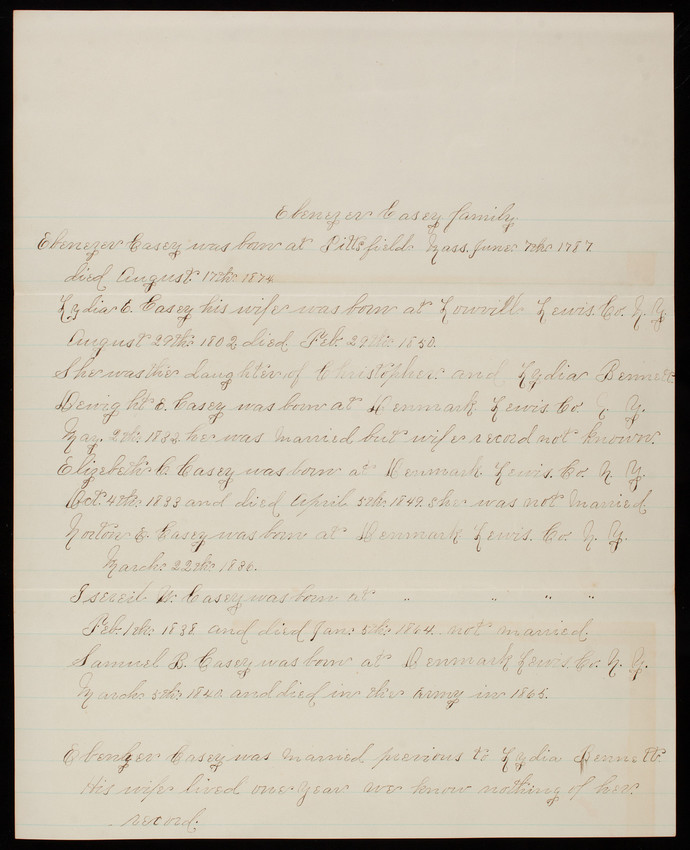 Ebenezer Casey family.
Ebenezer Casey was born at Pittsfield Mass, June 7th 1787
died August 17th 1874
Lydia C. Casey his wife was born at Lowvill Lewis. Co. N. Y.
August 29th 1802 died Feb. 29th 1850.
She was the daughter of Christopher and Lydia Bennett
Dewight E. Casey was born at Denmark Lewis. Co. N. Y.
May. 2th 1832 he was married but wife record not known.
Elizebeth Casey was born at Denmark Lewis. Co. N. Y.
Oct. 4th 1833 and died April 5th 1849. she was not married
Norton E. Casey was born at Denmark Lewis. Co. N. Y.
March 22th 1836.
Casey was born at " " " "
Feb. 1th 1838 and died Jan. 5th 1864 not married.
Samuel B. Casey was born at Denmark Lewis. Co. N. Y.
March 5th and died in the army in 1865.
Ebenezer Casey was married previous to Lydia Bennett
His wife lived one year we know nothing of her
record.